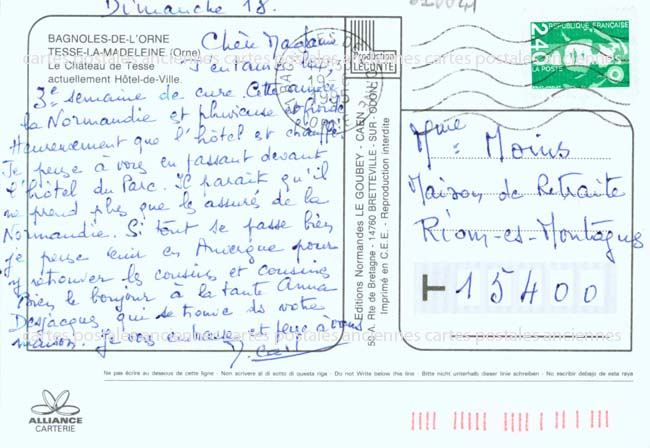 Dimanche 18.
BAGNOLES-DE-L'ORNE
TESSE-LA-MADELEINE (Orne)
Le Château de Tesse
actuellement Hôtel-de-Ville.
Chère Madame
J'entame la
3e semaine de cure. Cette année
la Normandie est pluvieuse et froide
Heureusement que l'hôtel est chauffé.
Je pense à vous en passant devant
l'hôtel du Parc. Il paraît qu'il
ne prend plus que les assurés de la
Normandie. Si tout se passe bien
je pense venir en Auvergne pour
y retrouver les cousins et cousines
Bien le bonjour à la tante Anna
Desjacques qui se trouve ds votre
maison. Je vous embrasse et pense à vous
Production
LECONTE
Editions Normandes LE GOUBEY - CAEN
59 A. Rte de Bretagne - 14760 BRETTEVILLE - SUR - ODON
Imprimé en C.E.E. - Reproduction interdite
REPUBLIQUE FRANÇAISE
2,40
LA POSTE
Mme Moins
Maison de Retraite
Riom-es-Montagnes
15400
cartes postales anciennes cartes postales anciennes cartes postales anciennes
cartes postales anciennes cartes postales anciennes cartes postales anciennes
Ne pas écrire au dessous de cette ligne - Non scrivere al di sotto di questa riga - Do not Write below this line - Bitte nicht unterhalb dieser linie schreiben - No escribir debajo de esta raya
ALLIANCE
CARTERIE